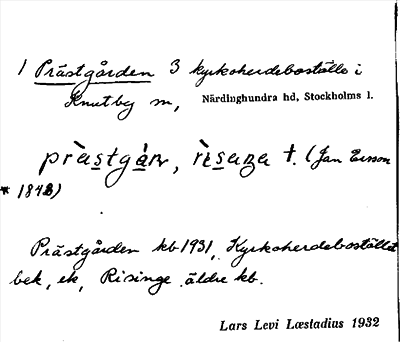 1 Prästgården 3 kyrkoherdeboställe i
Knutby sn, Närdinghundra hd, Stockholms l.
prästgån, risaṉa t. (Jan Ersson
* 1848)
Prästgården kb 1931, Kyrkoherdebostället
bek, ek, Risinge äldre kb.
Lars Levi Læstadius 1932